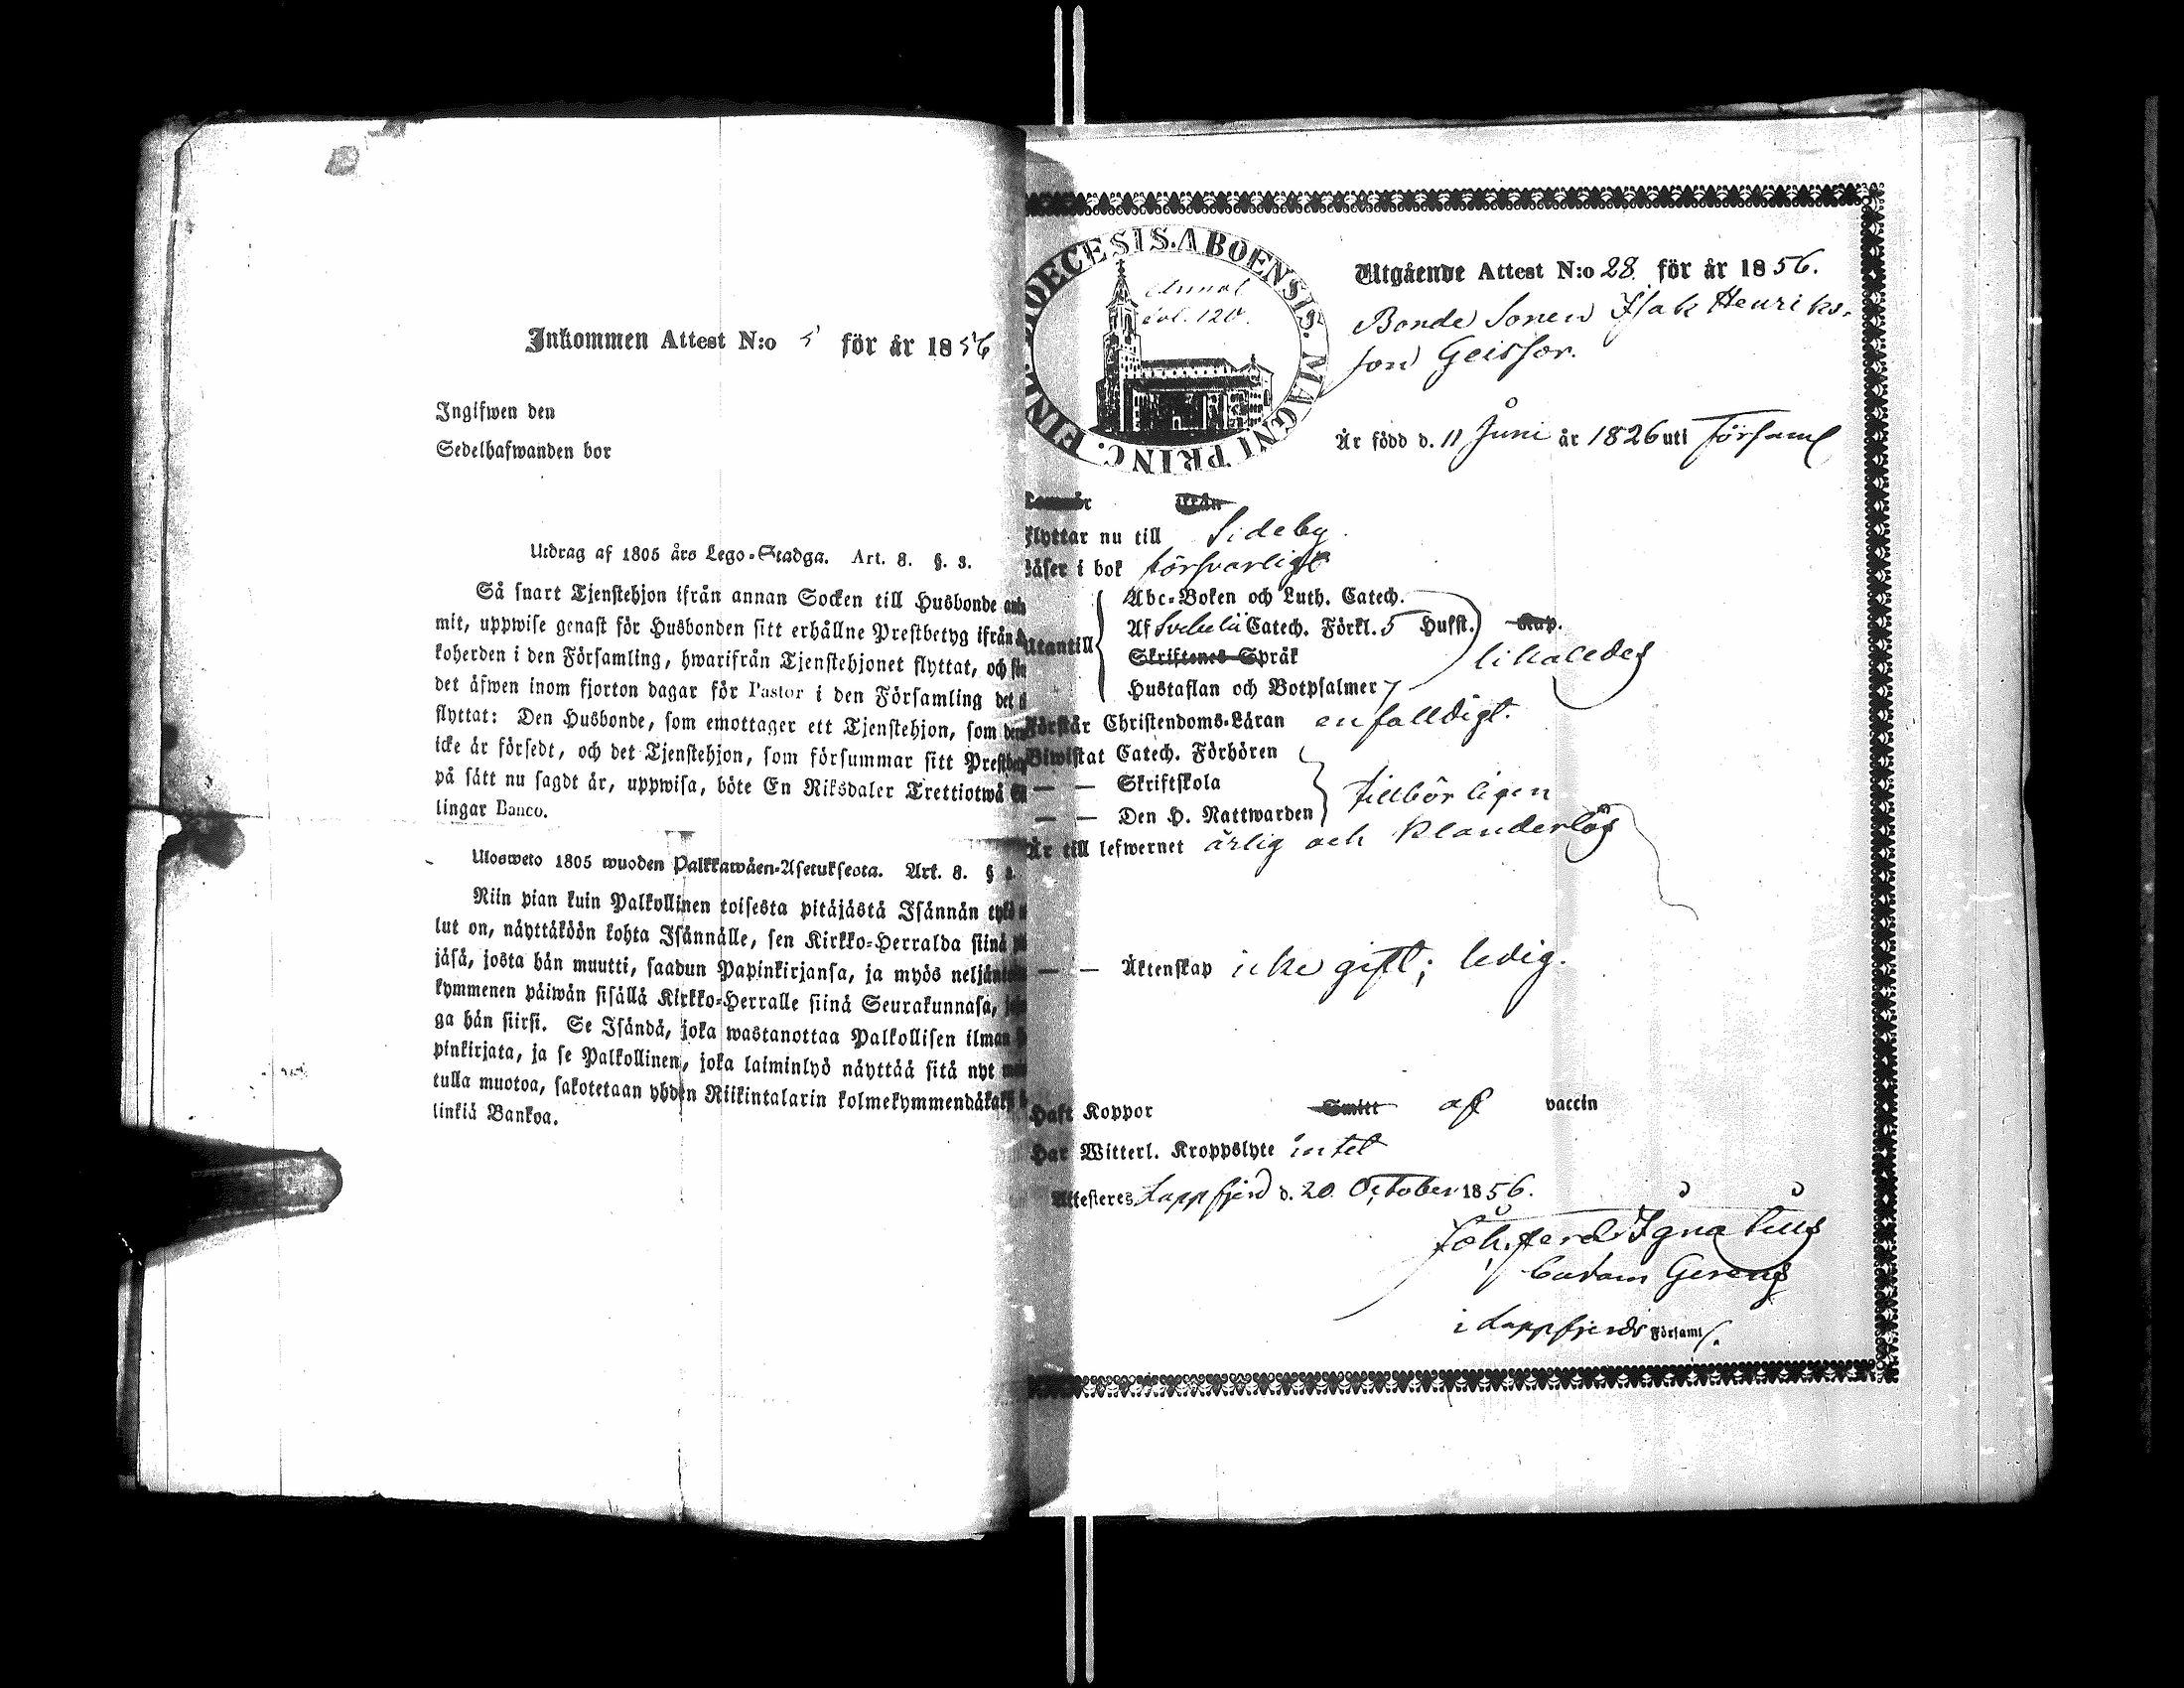 Inkommen Attest N:o 5 för år 1856
Ingifwen den
Sedelhafwanden bor
Utdrag af 1805 års Lego-Stadga. Art. 8. §. 3.
Så snart Tjenstehjon ifrån annan Socken till Husbonde
mit, uppwise genast för Husbonden sitt erhållne Prestbetyg ifrån
koherden i den Församling, hwarifrån Tjenstehjonet flyttat, och
det äfwen inom fjorton dagar för Pastor i den Församling det
flyttat: Den Husbonde, som emottager ett Tjenstehjon, som
icke är försedt, och det Tjenstehjon, som försummar sitt
på sätt nu sagdt är, uppwisa, böte En Riksdaler Trettiotwå
lingar Banco.
Ulosweto 1805 wuoden Palkkawäen-Asetuksesta. Art. 8. §
Niin pian kuin Palkollinen toisesta pitäjästä Isännän tykö
lut on, näyttäköön kohta Isännälle, sen Kirkko-Herralda siinä
jäsä, josta hän muutti, saadun Papinkirjansa, ja myös
kymmenen päiwän sisällä Kirkko-Herralle siinä Seurakunnasa,
ga hän siirsi. Se Isändä, joka wastanottaa Palkollisen ilman
pinkirjata, ja se Palkollinen, joka laiminlyö näyttää sitä nyt
tulla muotoa, sakotetaan yhden Riikintalarin
linkiä Bankoa.
DIOECESIS. ABOENSIS. MAGNI PRINC. FINL.
fol. 120.
Utgående Attest N:o 28 för år 1856.
Bonde Sonen Isak Henriks-
son Geisfor.
Är född d. 11 Juni år 1826 uti Församl
från
flyttar nu till Sideby.
läser i bok försvarligt
Utantill
Abc-Boken och Luth. Catech.
Af Svebelii Catech. Förkl. 5 Hufst. Kap.
Skriftenes Språk
likaledes
Hustaflan och Botpsalmer
Förstår Christendoms-Läran enfalldigt.
Biwistat Catech. Förhören
— — Skriftskola
tillbörligen
— — Den H. Nattwarden
Är till lefwernet ärlig och klanderlös
— — Äktenskap icke gift; ledig.
Haft Koppor Smitt af vaccin
Har Witterl. Kroppslyte intet
Attesteras Lappfjerd d. 20 October 1856.
Joh. Ferd. Ignatius
i Lappfjerds Församl.